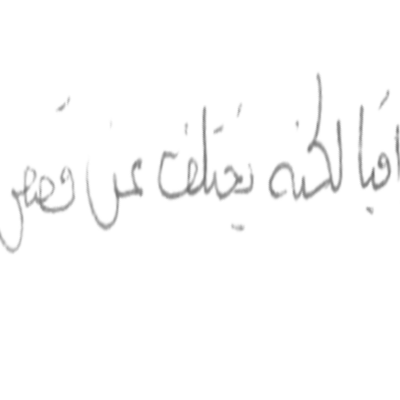 لكنه يختلف عن قصص